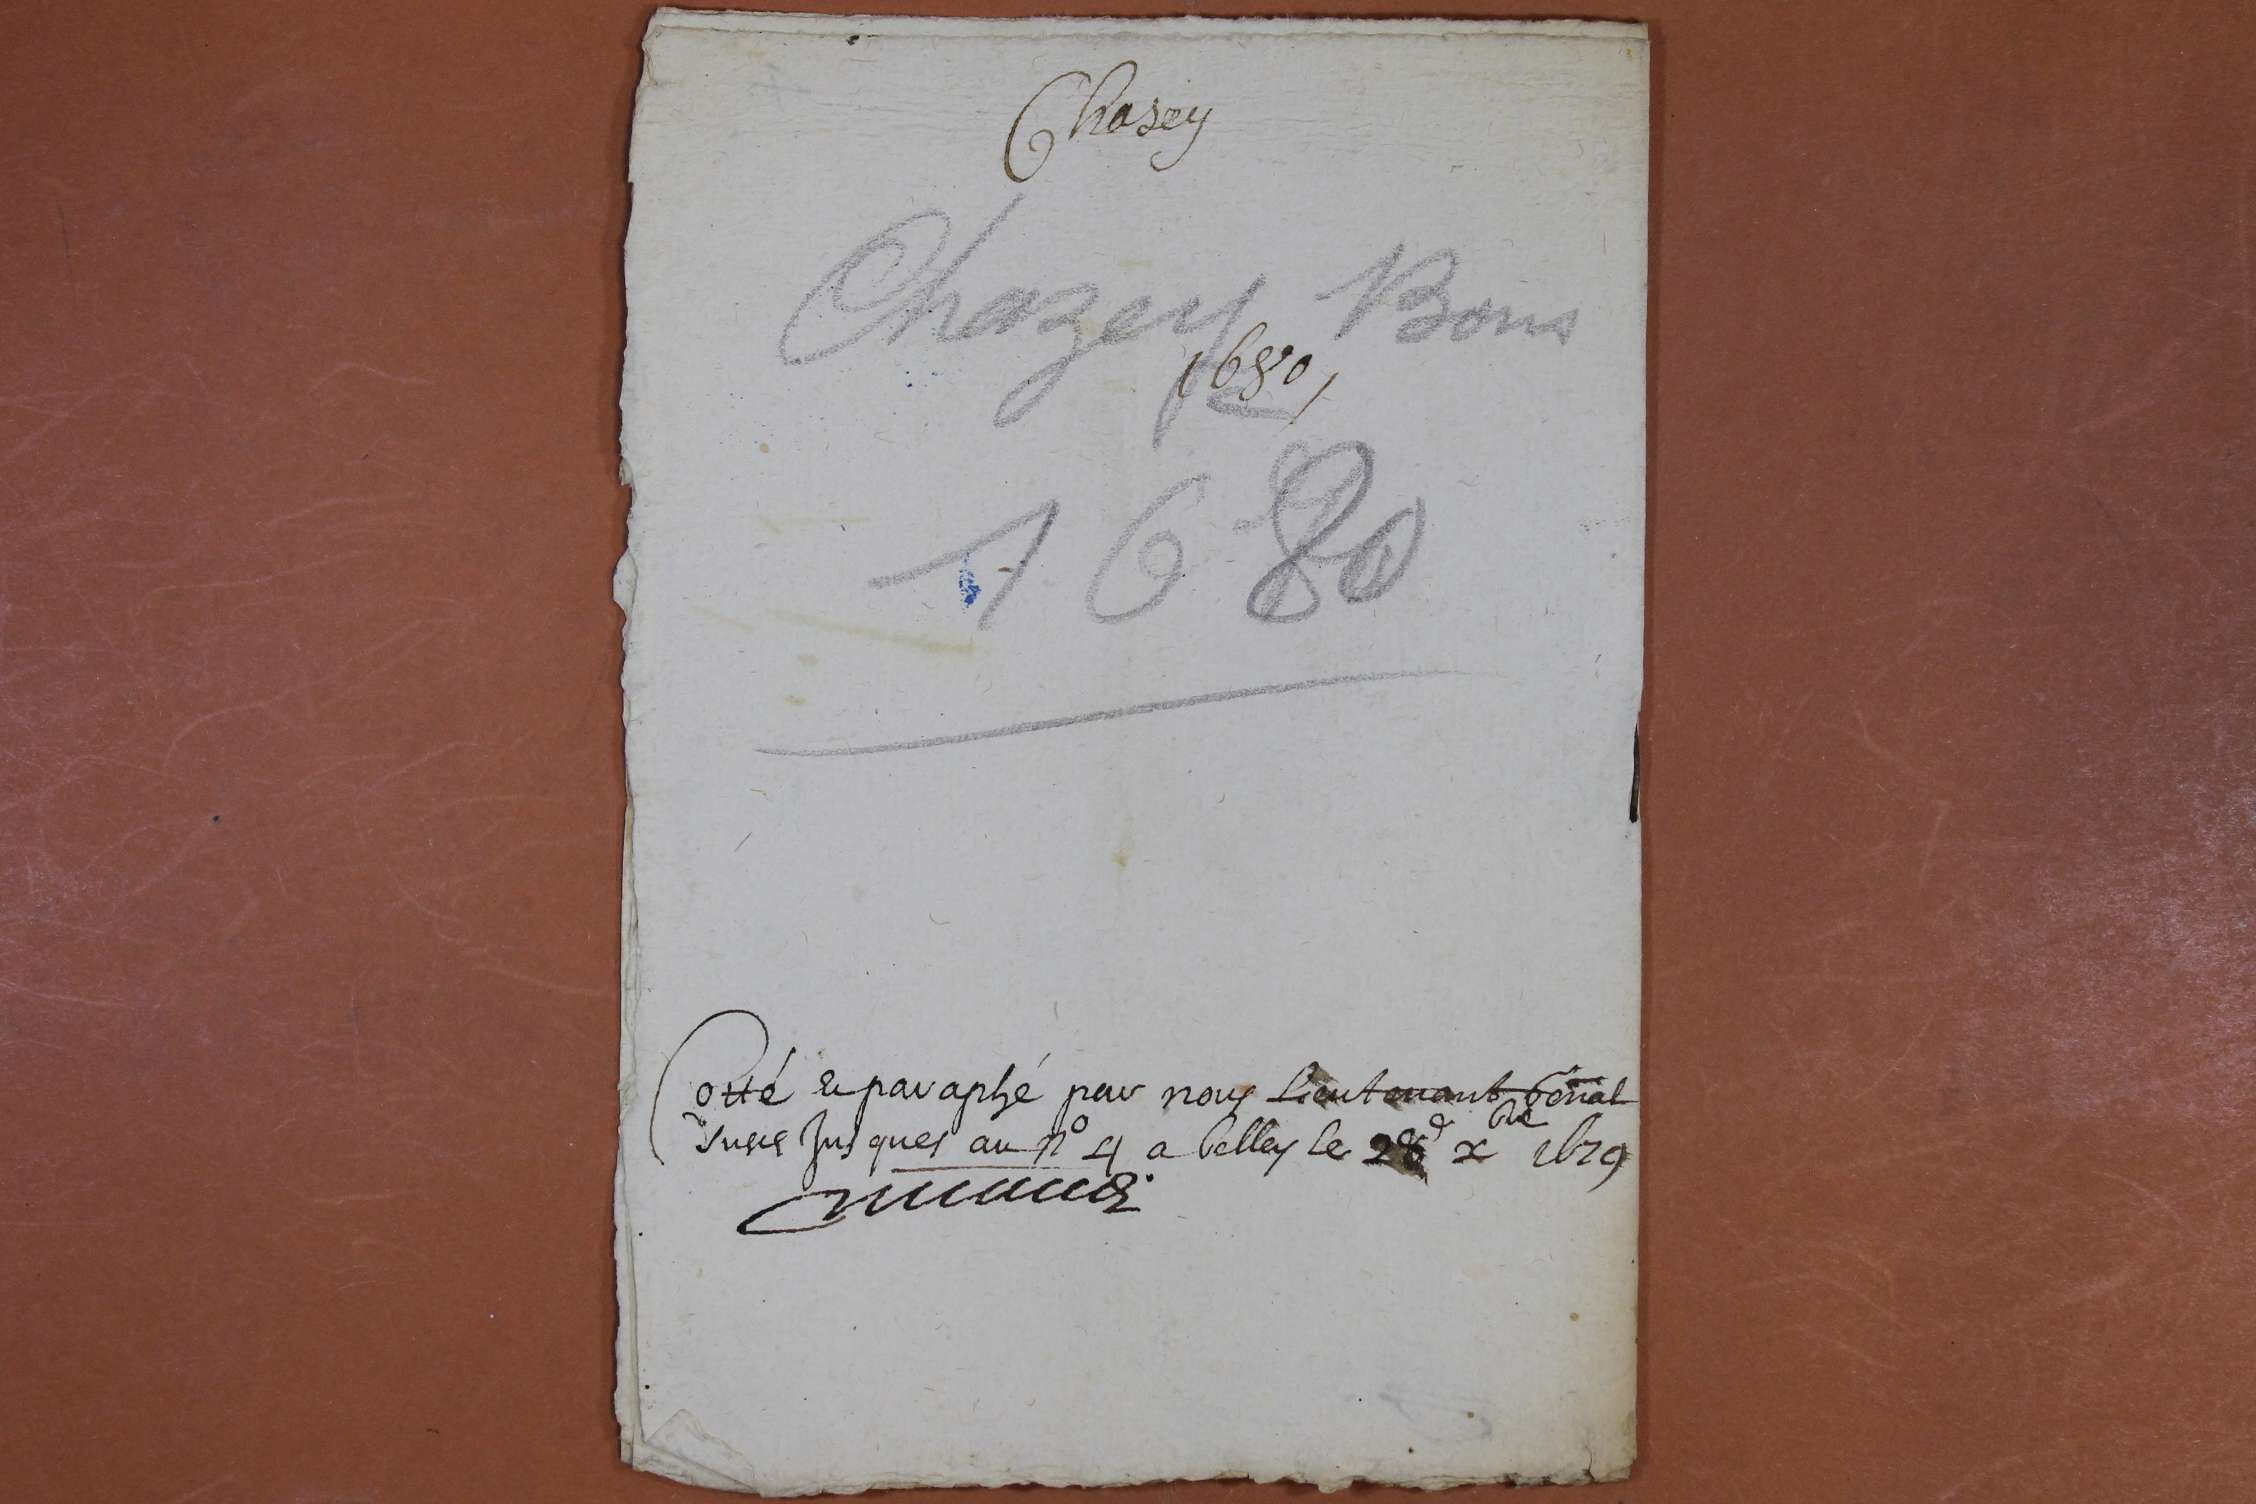 Chasey
Chazey Bons
1680
1680
Cotté & paraphé par nous Lieutenant Gënal
Jusques au n° 4 a belley le 28e xbre 1679